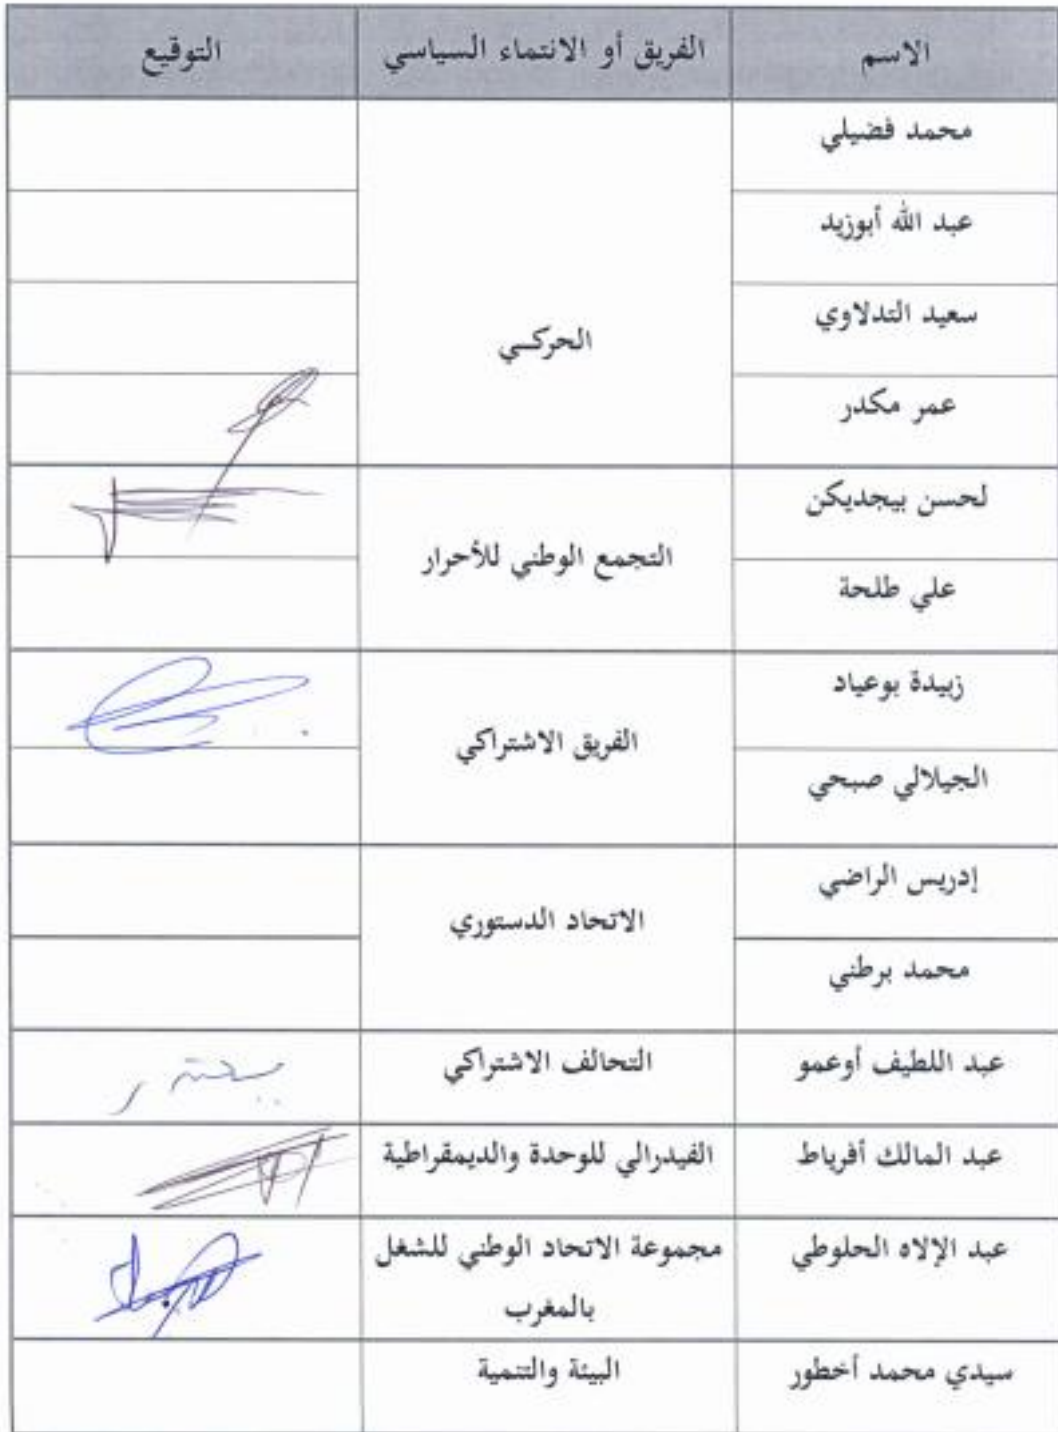 الاسم الفريق أو الانتماء السياسي التوقيع
محمد فضيلي
عبد الله أبوزيد
سعيد التدلاوي
الحركـي
عمر مكدر
لحسن بيجديكن
التجمع الوطني للأحرار
علي طلحة
زبيدة بوعياد
الفريق الاشتراكي
الجيلالي صبحي
إدريس الراضي
الاتحاد الدستوري
محمد برطني
عبد اللطيف أوعمو التحالف الاشتراكي
عبد المالك أفرياط الفيدرالي للوحدة والديمقراطية
عبد الإلاه الحلوطي مجموعة الاتحاد الوطني للشغل
بالمغرب
سيدي محمد أخطور البيئة والتنمية